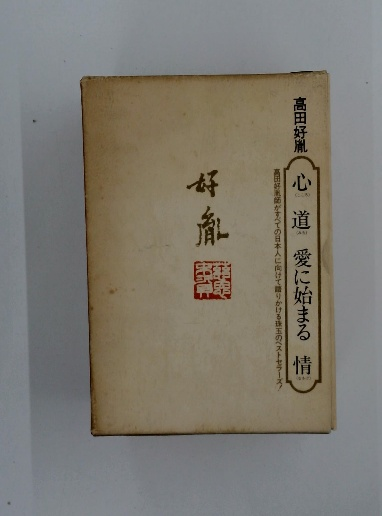 高田好胤
心 道 愛に始まる 情
高田好胤師がすべての日本人に向けて語りかける珠玉のベストセラーズ!
好胤